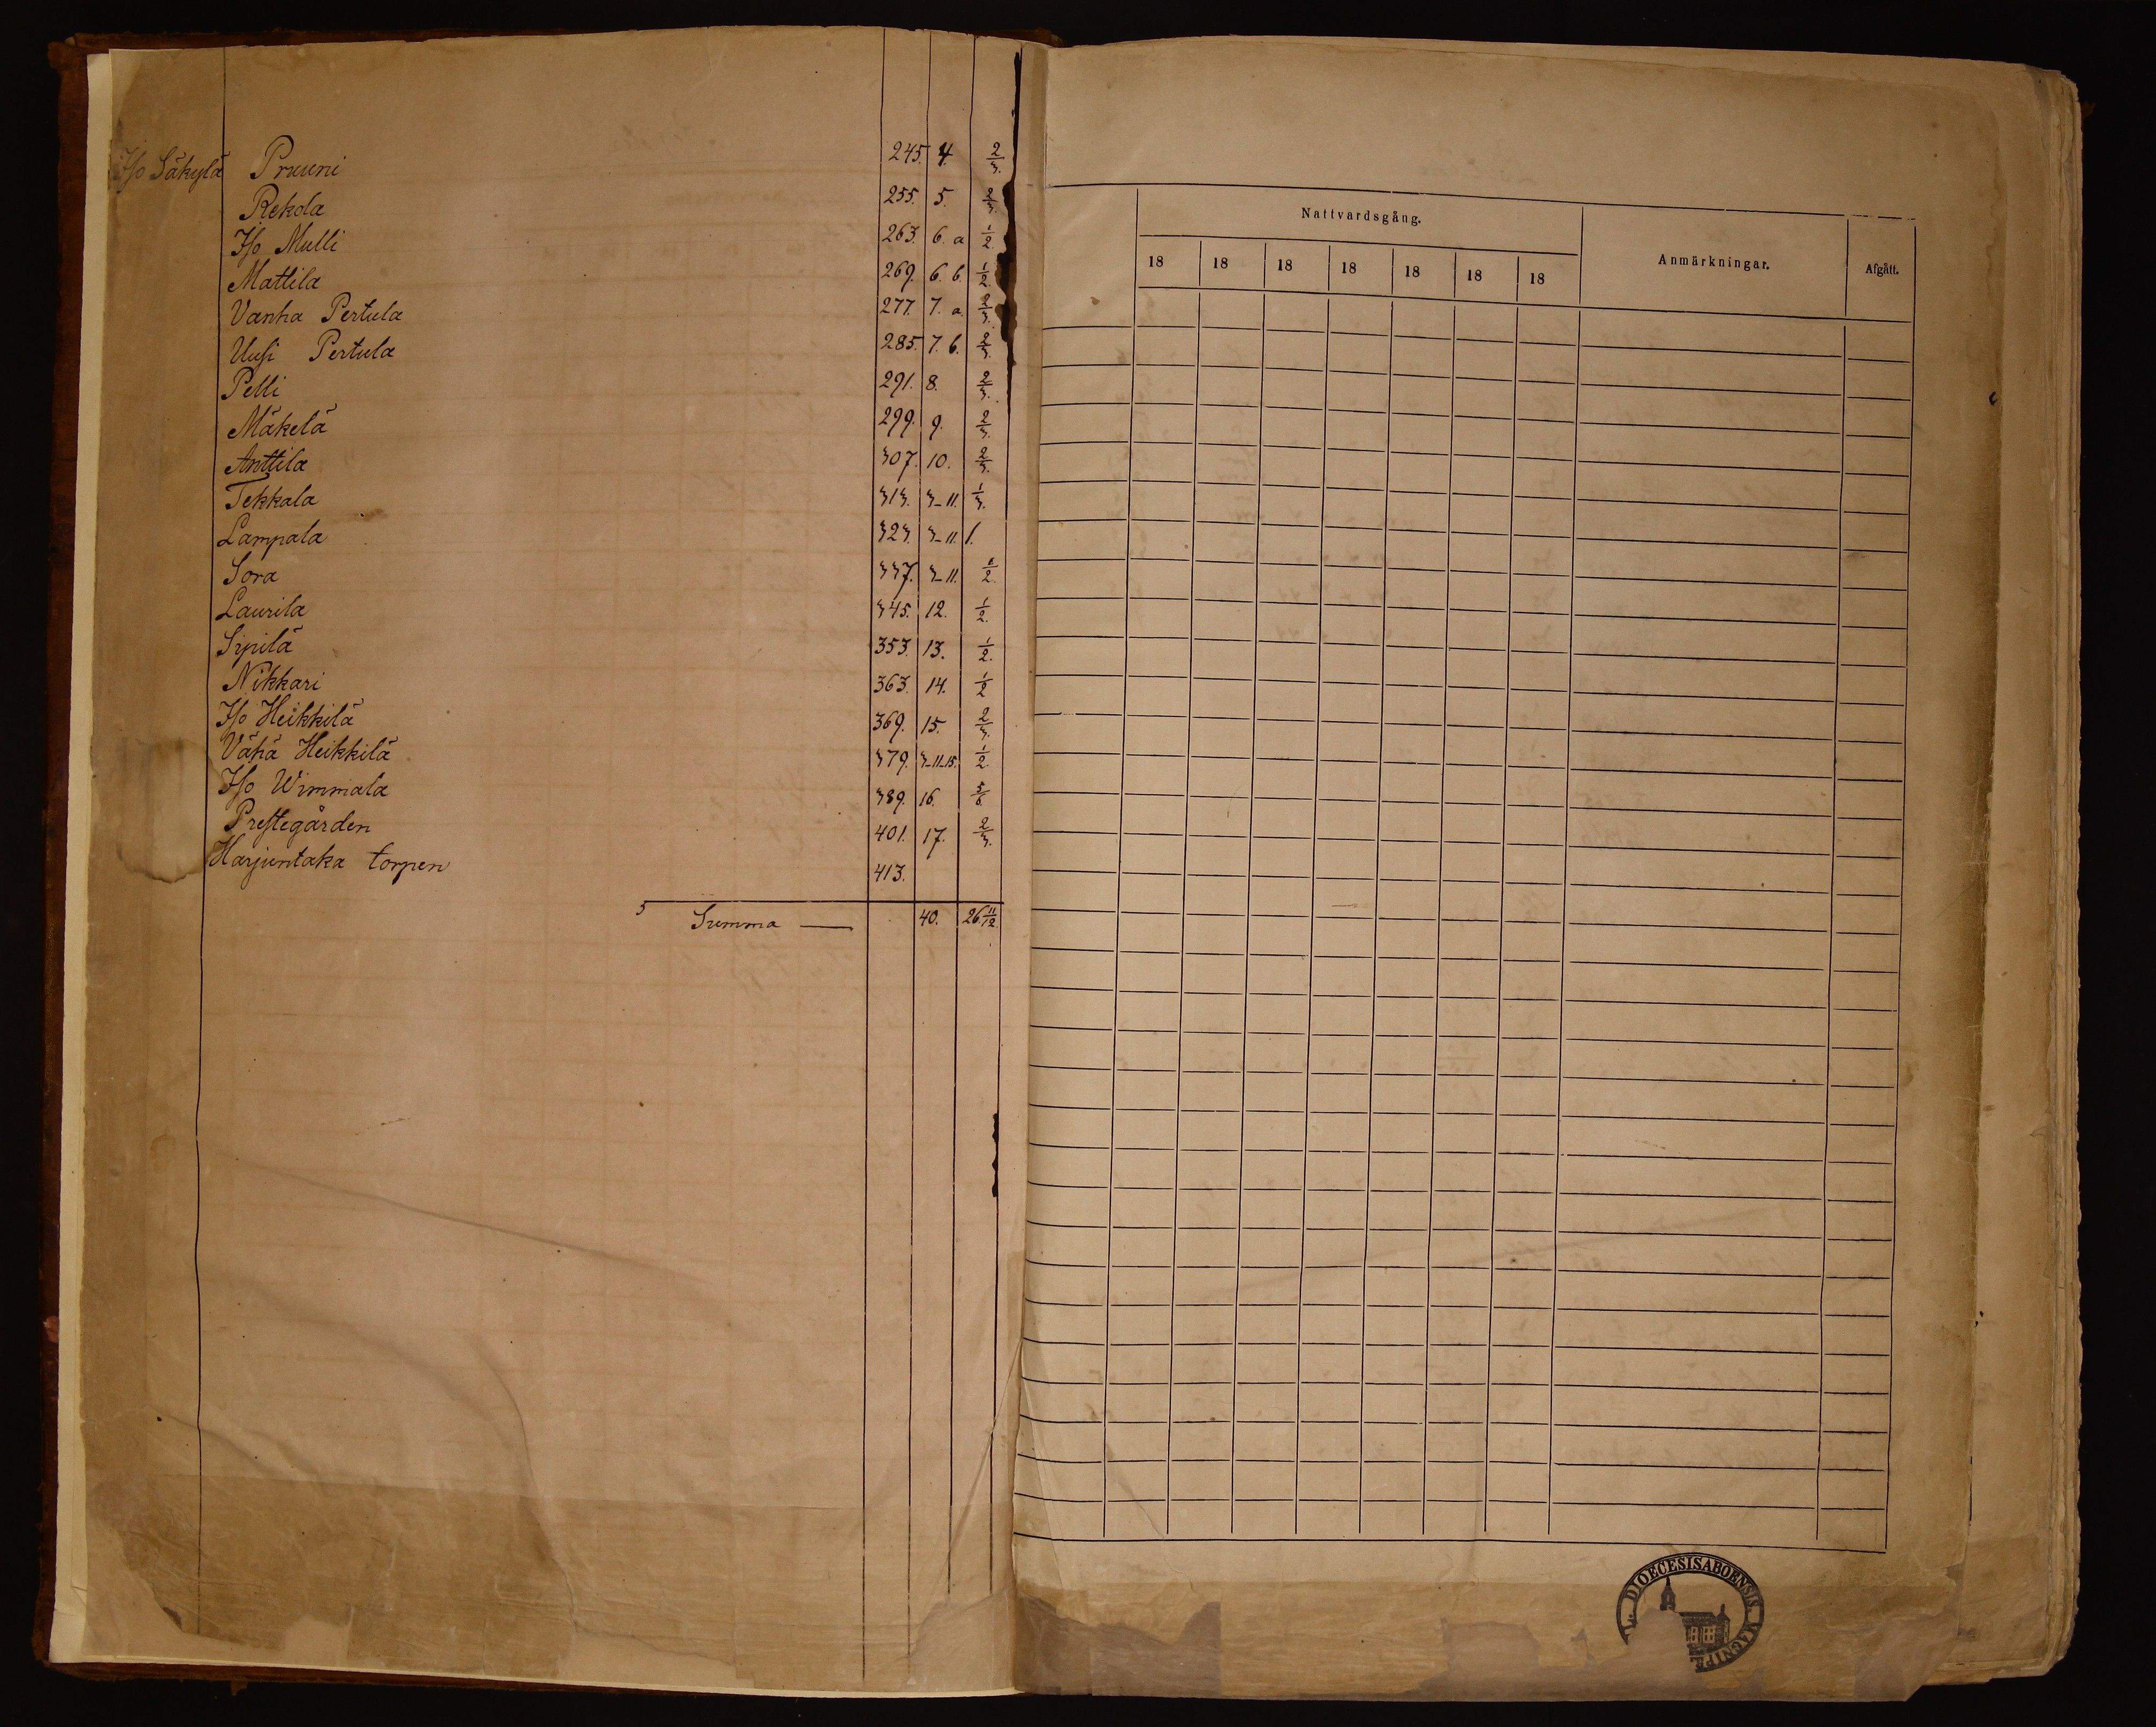 Iso Säkylä Pruuni 245. 4. 2/3.
Rekola 255. 5. 2/3.
Iso Mulli 263. 6. a 1/2.
Mattila 269. 6. b. 1/2.
Vanha Pertula 277. 7. a. 2/3.
Uusi Pertula 285. 7. b. 2/3.
Pelli 291. 8. 2/3.
Mäkelä 299. 9. 2/3.
Anttila 307. 10. 2/3.
Tekkala 313. 3-11. 1/3.
Lampala 323. 3-11. 1.
Sora 337. 3-11. 1/2.
Laurila 345. 12. 1/2.
Sipilä 353. 13. 1/2.
Nikkari 363. 14. 1/2
Iso Heikkilä 369. 15. 2/3.
Vähä Heikkilä 379. 3-11-15. 1/2.
Iso Wimmala 389. 16. 5/6.
Prestegården 401. 17. 2/3.
Harjuntaka torpen 413.
Summa — 40. 26 11/12
Nattvardsgång. Anmärkningar. Afgått.
18 18 18 18 18 18 18
DIOECESIS ABOENSIS